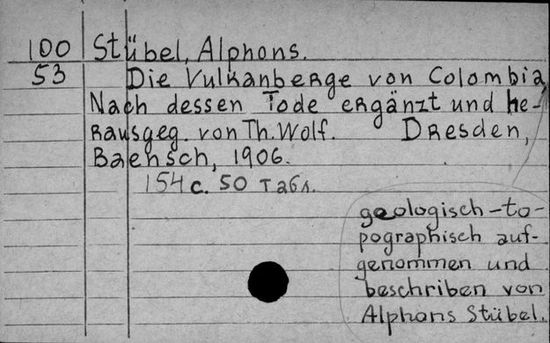 100 Stübel, Alphons.
53 Die Vulkanberge von Colombia,
Nach dessen Tode ergänzt und he-
rausgeg. von Th. Wolf. Dresden,
Baensch, 1906.
154 с. 50 табл.
geologisch-to-
pographisch auf-
genommen und
beschriben von
Alphons Stübel.